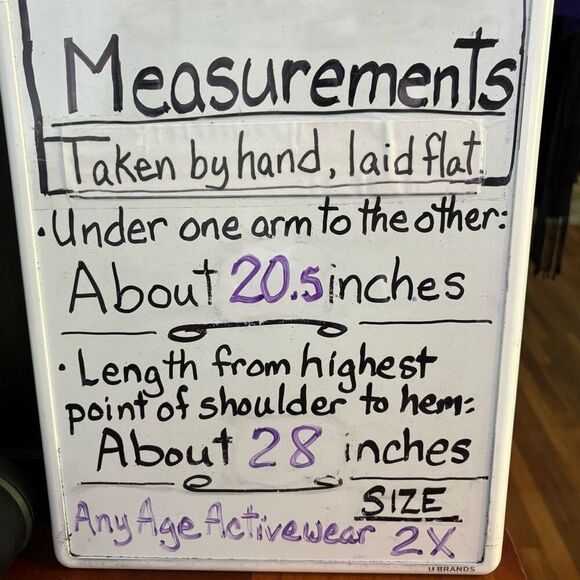 Measurements
Taken by hand, laid flat.
• Under one arm to the other:
About 20.5 inches
• Length from highest
point of shoulder to hem:
About 28 inches
SIZE
Any Age Activewear 2X
U BRANDS